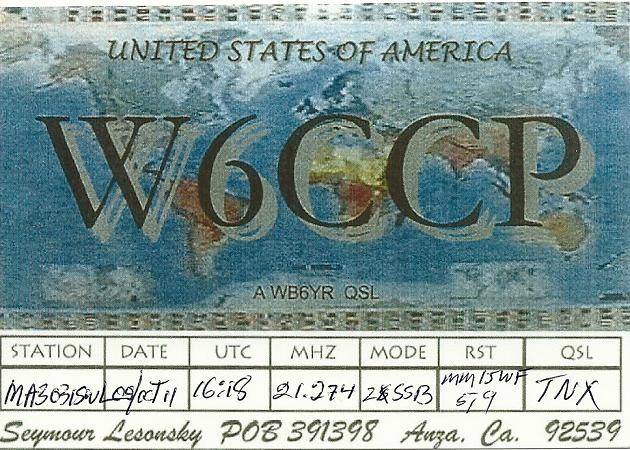 UNITED STATES OF AMERICA
W6CCP
A WB6YR QSL
STATION DATE UTC MHZ MODE RST QSL
MA3031SWL 09/OCT11 16:18 21.274 2XSSB 579 TNX
Seymour Lesonsky POB 391398 Anza, Ca. 92539